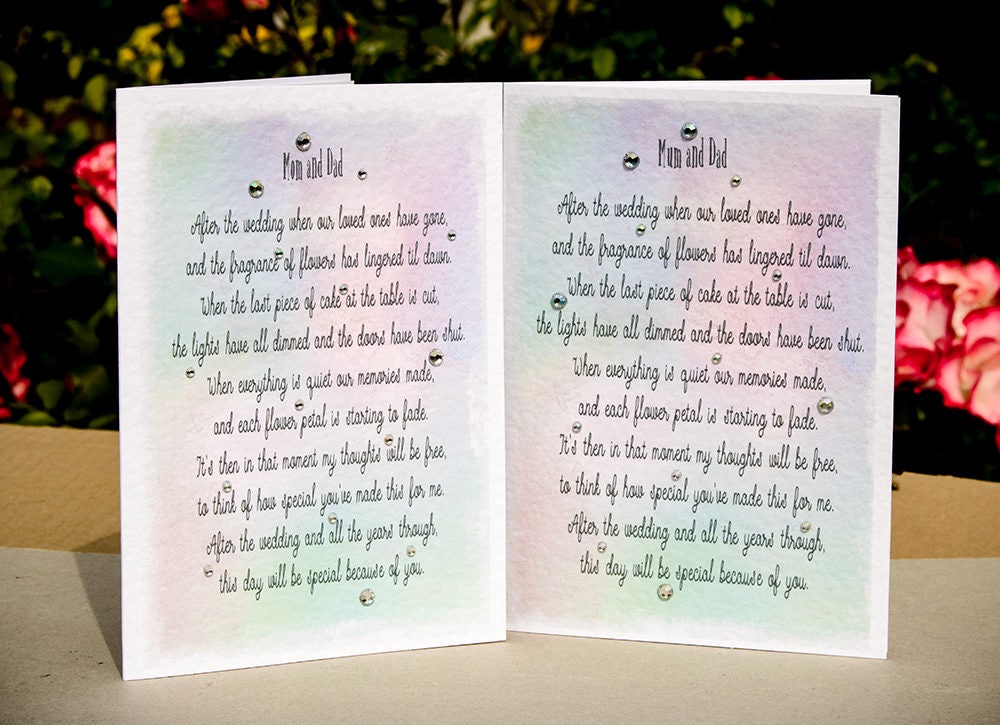 Mom and Dad
After the wedding when our loved ones have gone,
and the fragrance of flowers has lingered til dawn.
When the last piece of cake at the table is cut,
the lights have all dimmed and the doors have been shut.
When everything is quiet our memories made,
and each flower petal is starting to fade.
It's then in that moment my thoughts will be free,
to think of how special you've made this for me.
After the wedding and all the years through,
this day will be special because of you.
Mum and Dad
After the wedding when our loved ones have gone,
and the fragrance of flowers has lingered til dawn.
When the last piece of cake at the table is cut,
the lights have all dimmed and the doors have been shut.
When everything is quiet our memories made,
and each flower petal is starting to fade.
It's then in that moment my thoughts will be free,
to think of how special you've made this for me.
After the wedding and all the years through,
this day will be special because of you.